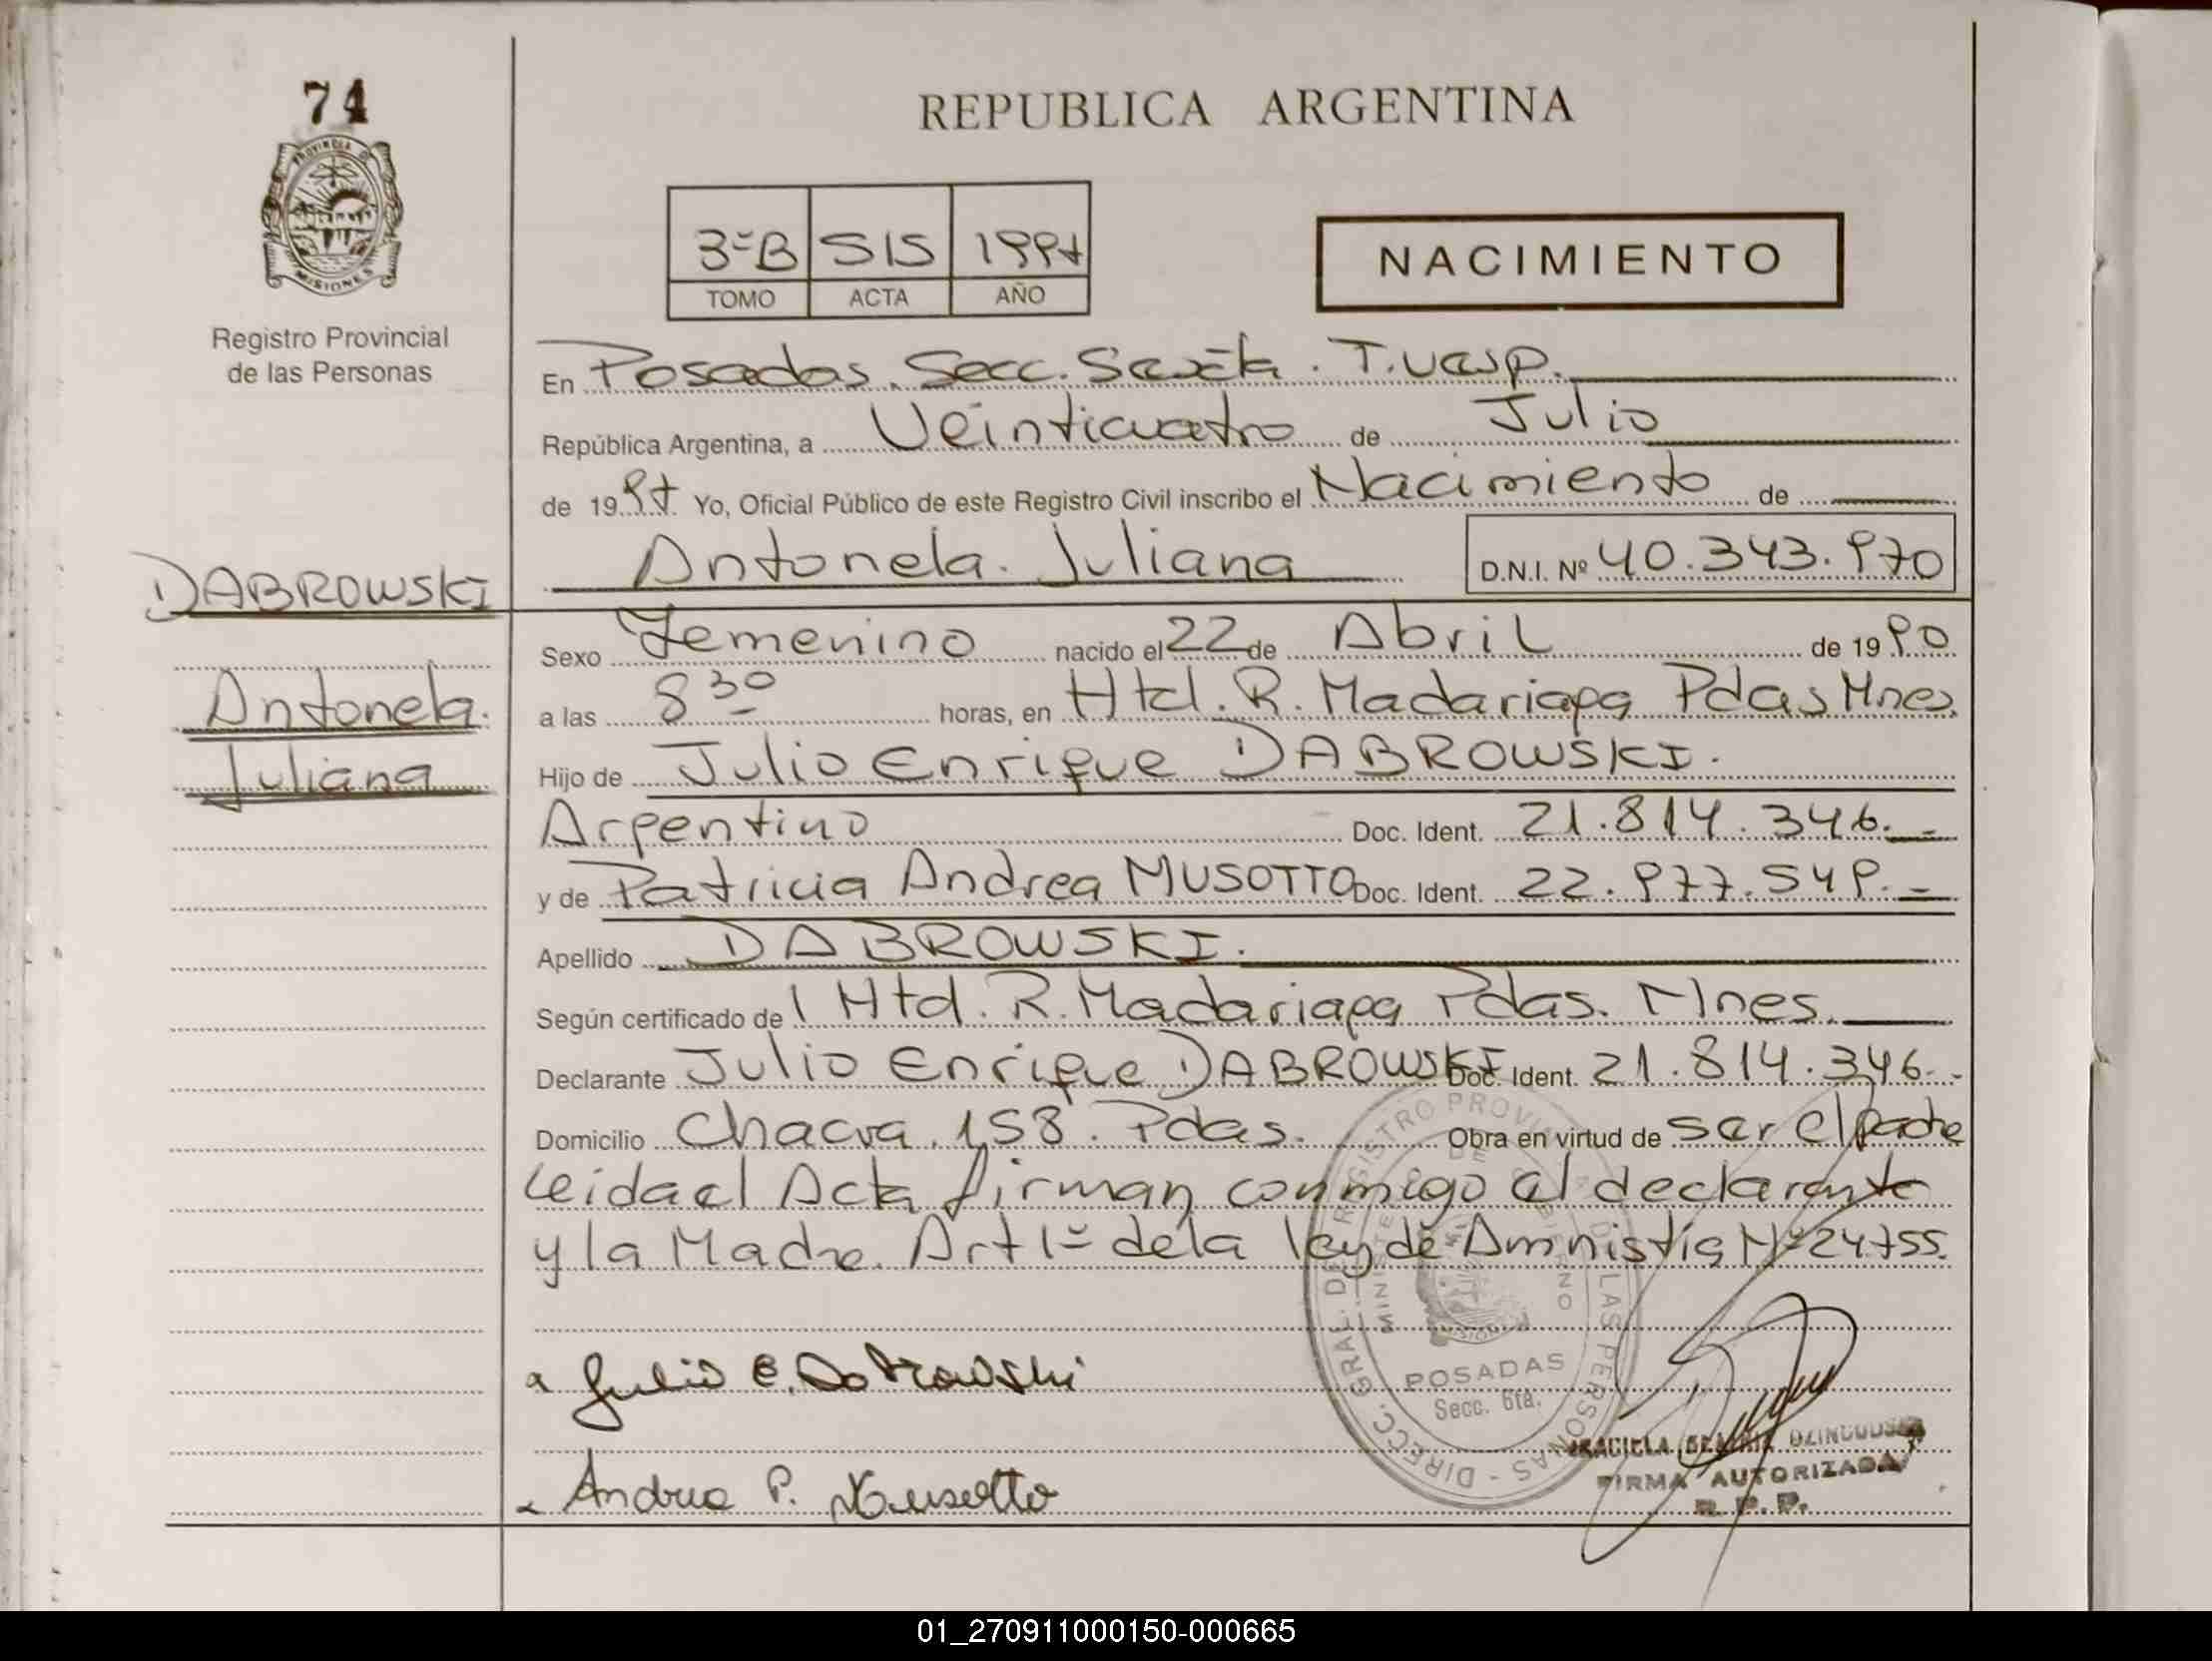 74
REPUBLICA ARGENTINA
PROVINCIA D
MISIONES
3º B 515 1997
TOMO ACTA AÑO
NACIMIENTO
Registro Provincial
de las Personas
En Posadas. Secc. Sexta. T. Vesp.
República Argentina, a Veinticuatro de Julio
de 1997 Yo, Oficial Público de este Registro Civil inscribo el Nacimiento de
Antonela. Juliana D.N.I. Nº 40.343.970
DABROWSKI
Antonela.
Juliana
Sexo Femenino nacido el 22 de Abril de 1990
a las 8 30 horas, en Htal. R. Madariaga Pdas Mnes.
Hijo de Julio Enrique DABROWSKI.
Argentino Doc. Ident. 21.814.346.
y de Patricia Andrea MUSOTTO Doc. Ident. 22.977.549.
Apellido DABROWSKI.
Según certificado de l Htal. R. Madariaga Pdas. Mnes.
Declarante Julio Enrique DABROWSKI Doc. Ident. 21.814.346.
Domicilio Chacra. 158. Pdas. Obra en virtud de ser el padre
Leida el Acta firman conmigo el declarante
y la Madre. Art 1º de la ley de Amnistia Nº 24755.
DIRECC. GRAL. DE REGISTRO PROVIN DE LAS PERSONAS
MINISTE DE GOBIERNO
MISIONES
POSADAS
Secc. 6ta.
Julio E. Dabrowski
Andrea P. Musotto
FIRMA AUTORIZADA
R. P. P.
01_270911000150-000665